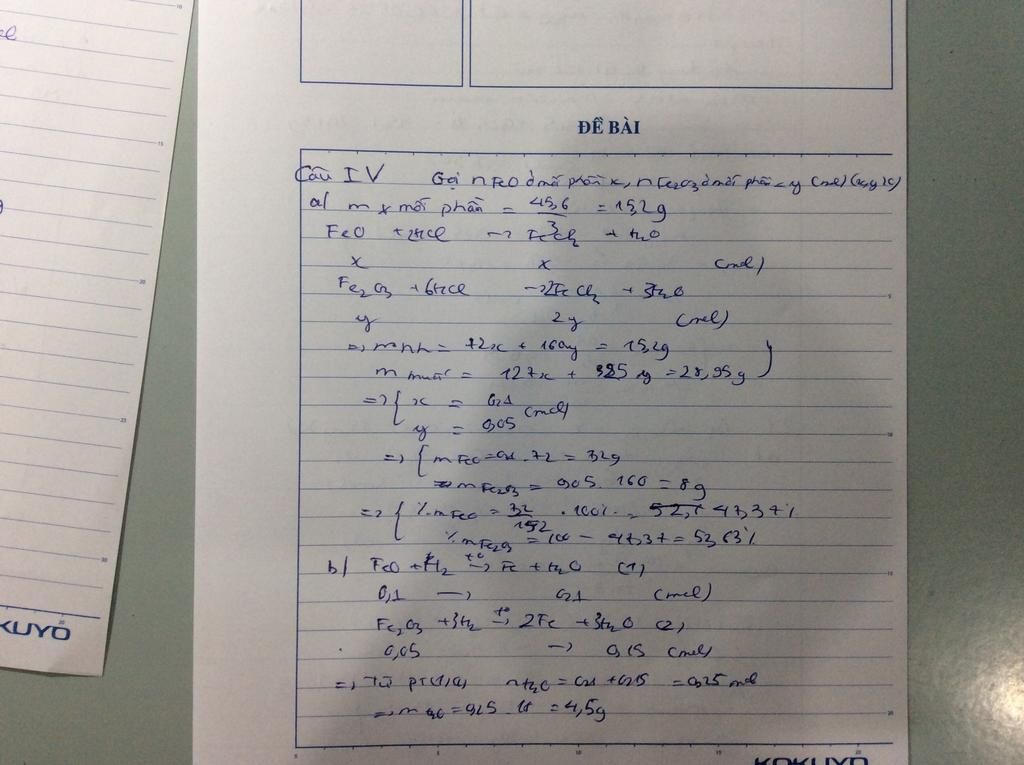 ĐỀ BÀI
Câu IV Gọi nFeO ở mỗi phần x, nFe2O3 ở mỗi phần = y (mol) (x,y>0)
a) m X mỗi phần = 45,6/3 = 15,2g
FeO + 2HCl → FeCl2 + H2O
x x (mol)
Fe2O3 + 6HCl → 2FeCl3 + 3H2O
y 2y (mol)
=> mhh = 72x + 160y = 15,2g
m muối = 127x + 325y = 28,95g
=> { x = 0,1 (mol)
y = 0,05
=> { mFeO = 0,1 . 72 = 7,2g
mFe2O3 = 0,05 . 160 = 8g
=> { %mFeO = 7,2/15,2 . 100% = 47,37%
%mFe2O3 = 100 - 47,37 = 52,63%
b) FeO + H2 t° → Fe + H2O (1)
0,1 → 0,1 (mol)
Fe2O3 + 3H2 t° → 2Fe + 3H2O (2)
0,05 → 0,15 (mol)
=> Từ PT(1,2) nH2O = 0,1 + 0,15 = 0,25 mol
=> mH2O = 0,25 . 18 = 4,5g
KUYO
KOKUYO